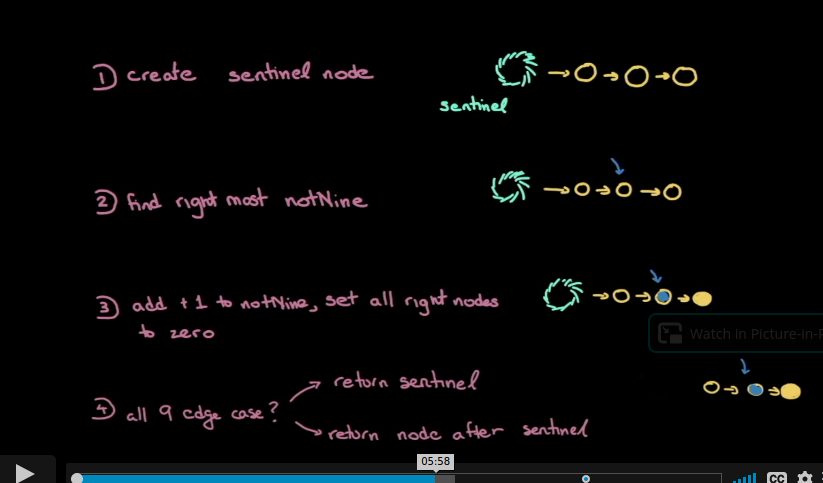 1) create sentinel node
sentinel
2) find right most notNine
3) add +1 to notNine, set all right nodes
to zero
Watch in Picture-in-P
4) all 9 edge case?
return sentinel
return node after sentinel
05:58
CC